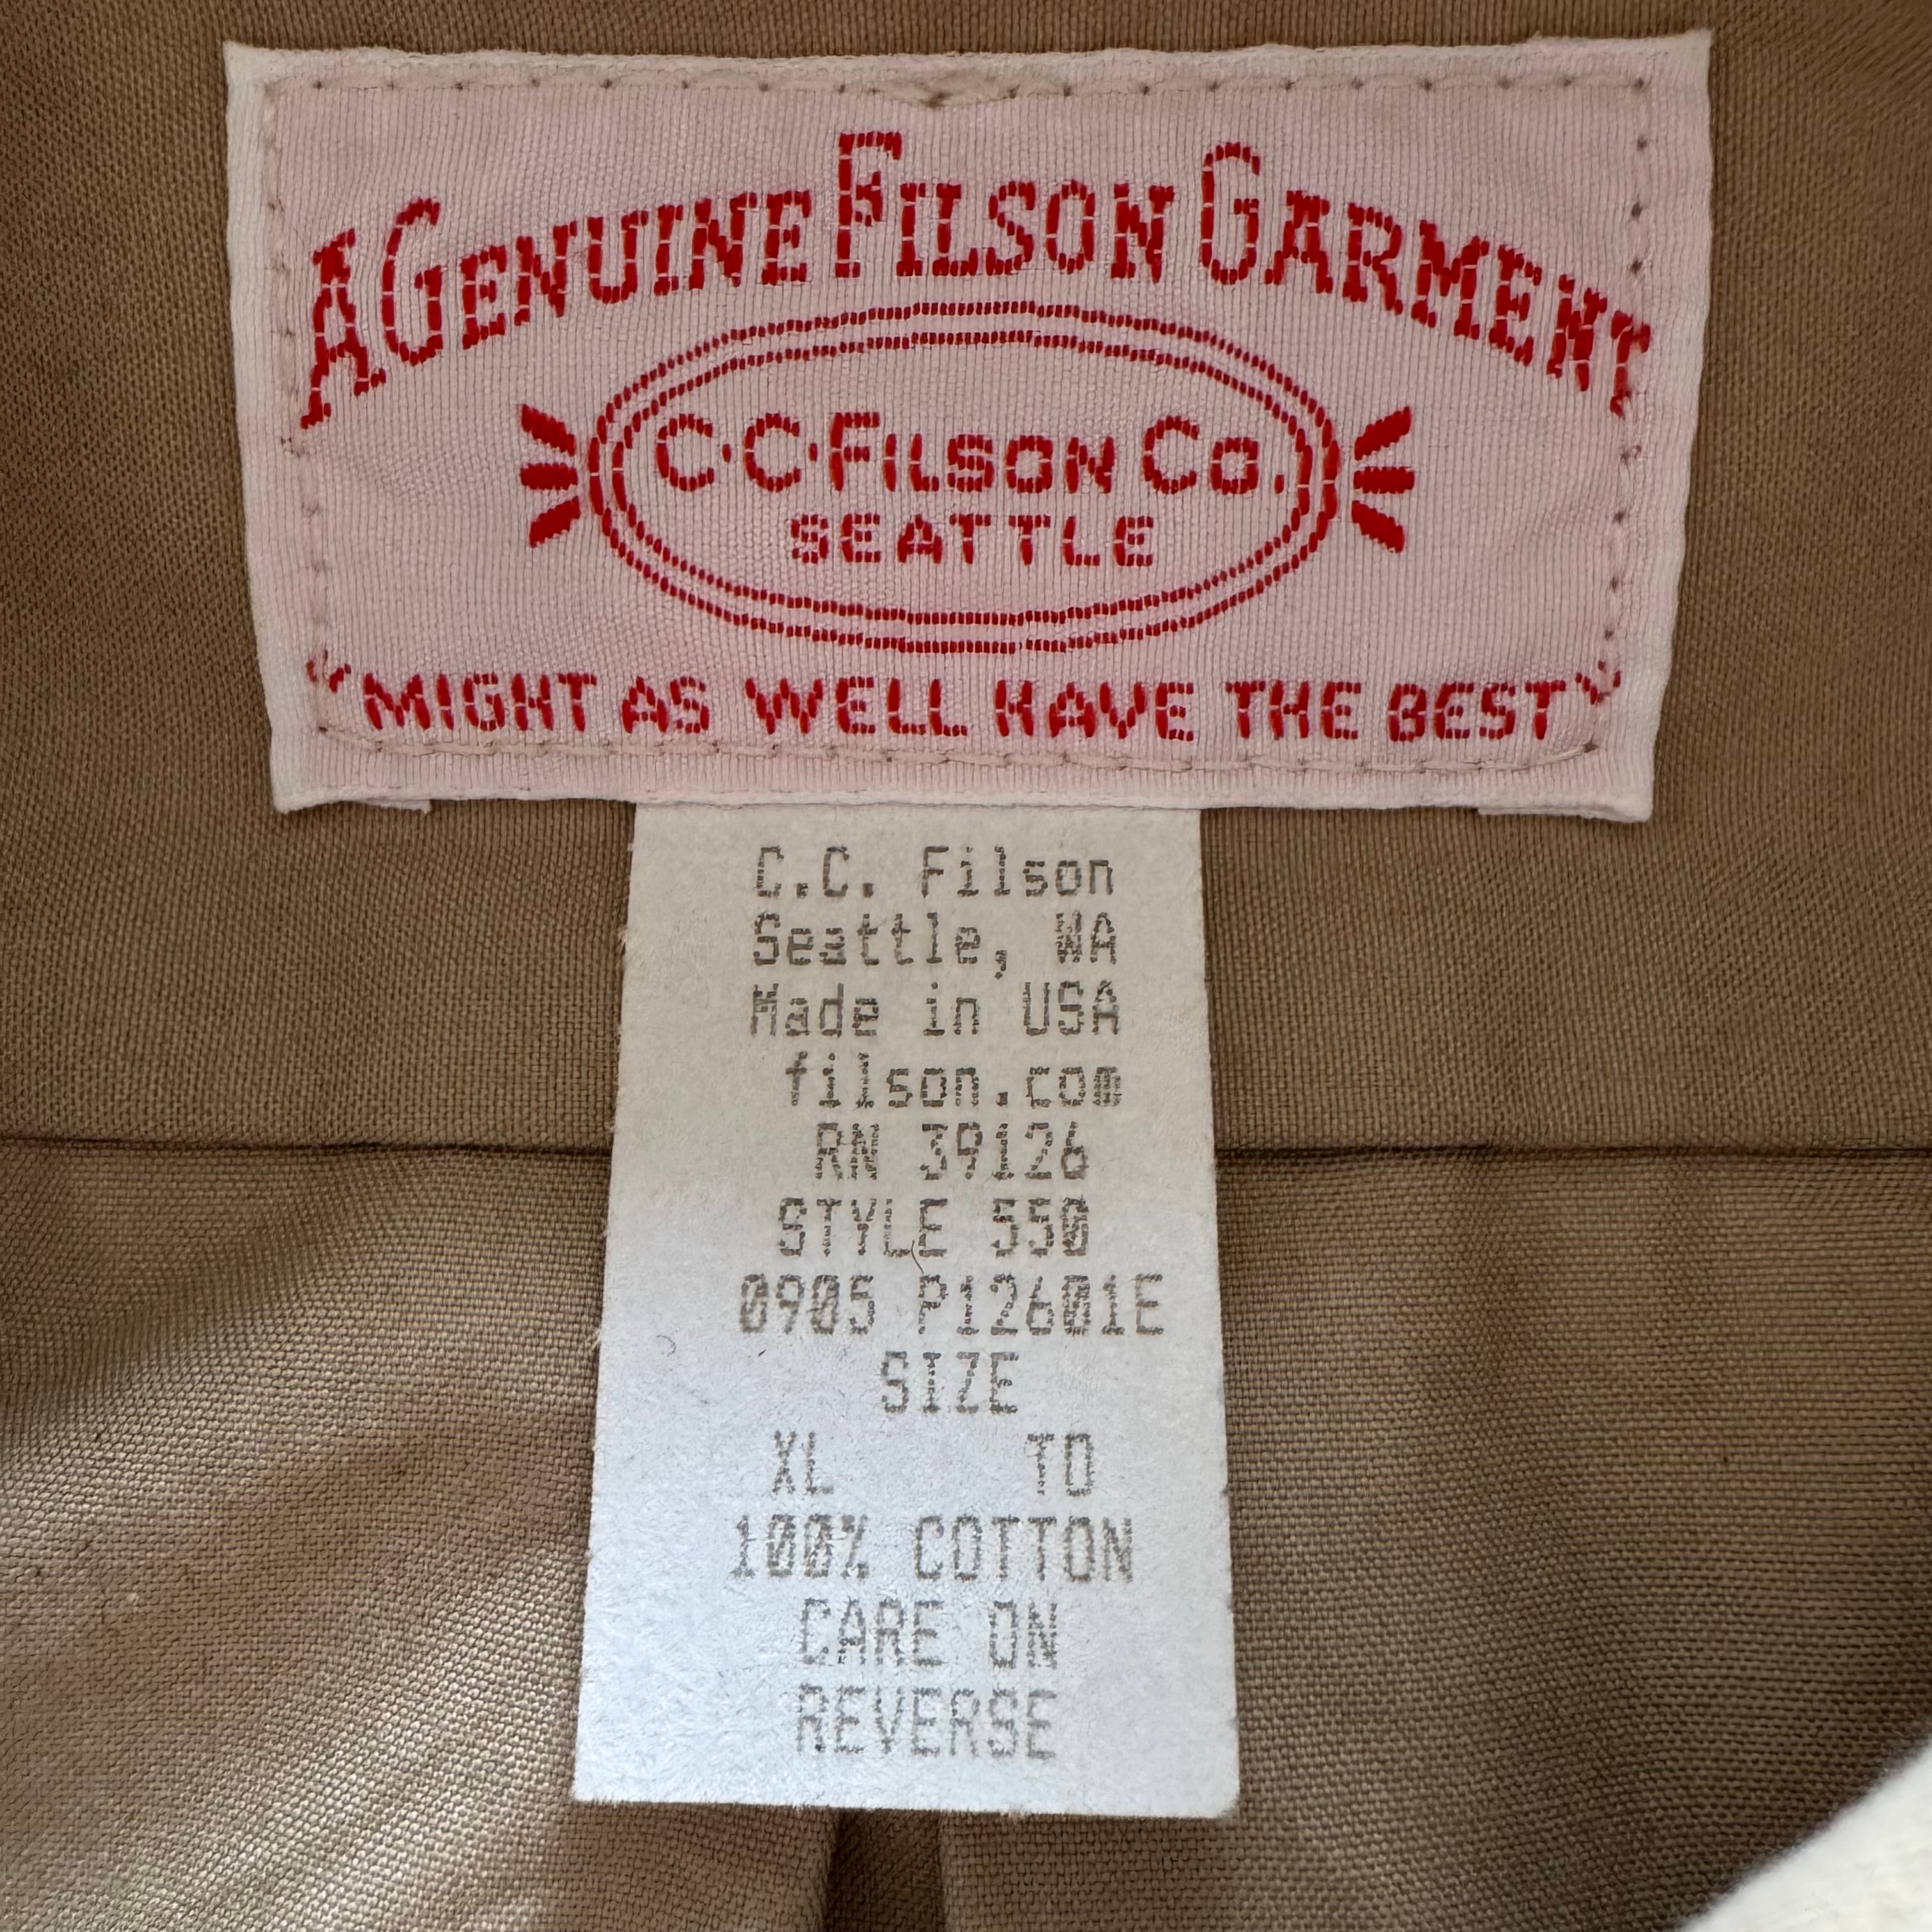 A GENUINE FILSON GARMENT
C·C·FILSON CO.
SEATTLE
"MIGHT AS WELL HAVE THE BEST"
C.C. Filson
Seattle, WA
Made in USA
filson.com
RN 39126
STYLE 550
0905 P12601E
SIZE
XL TO
100% COTTON
CARE ON
REVERSE